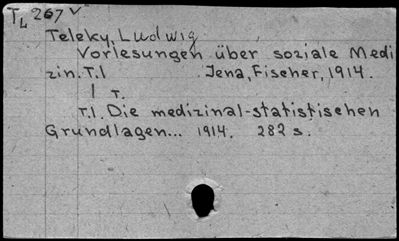 T4 267 V
Teleky, Ludwig
Vorlesungen über soziale Medi
zin. T.1 Jena, Fischer, 1914.
1 T.
T.1. Die medizinal-statistischen
Grundlagen... 1914. 282 s.